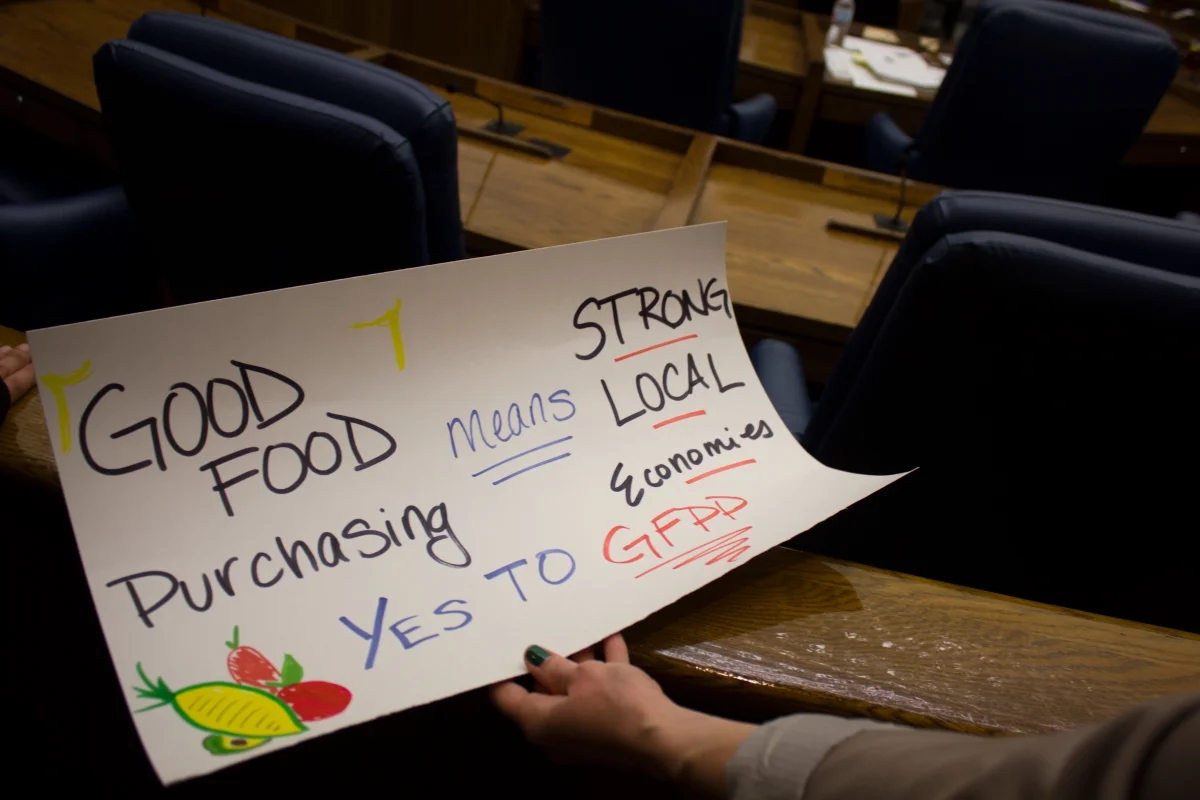 GOOD
FOOD
Purchasing
means
STRONG
LOCAL
Economies
YES TO GFPP